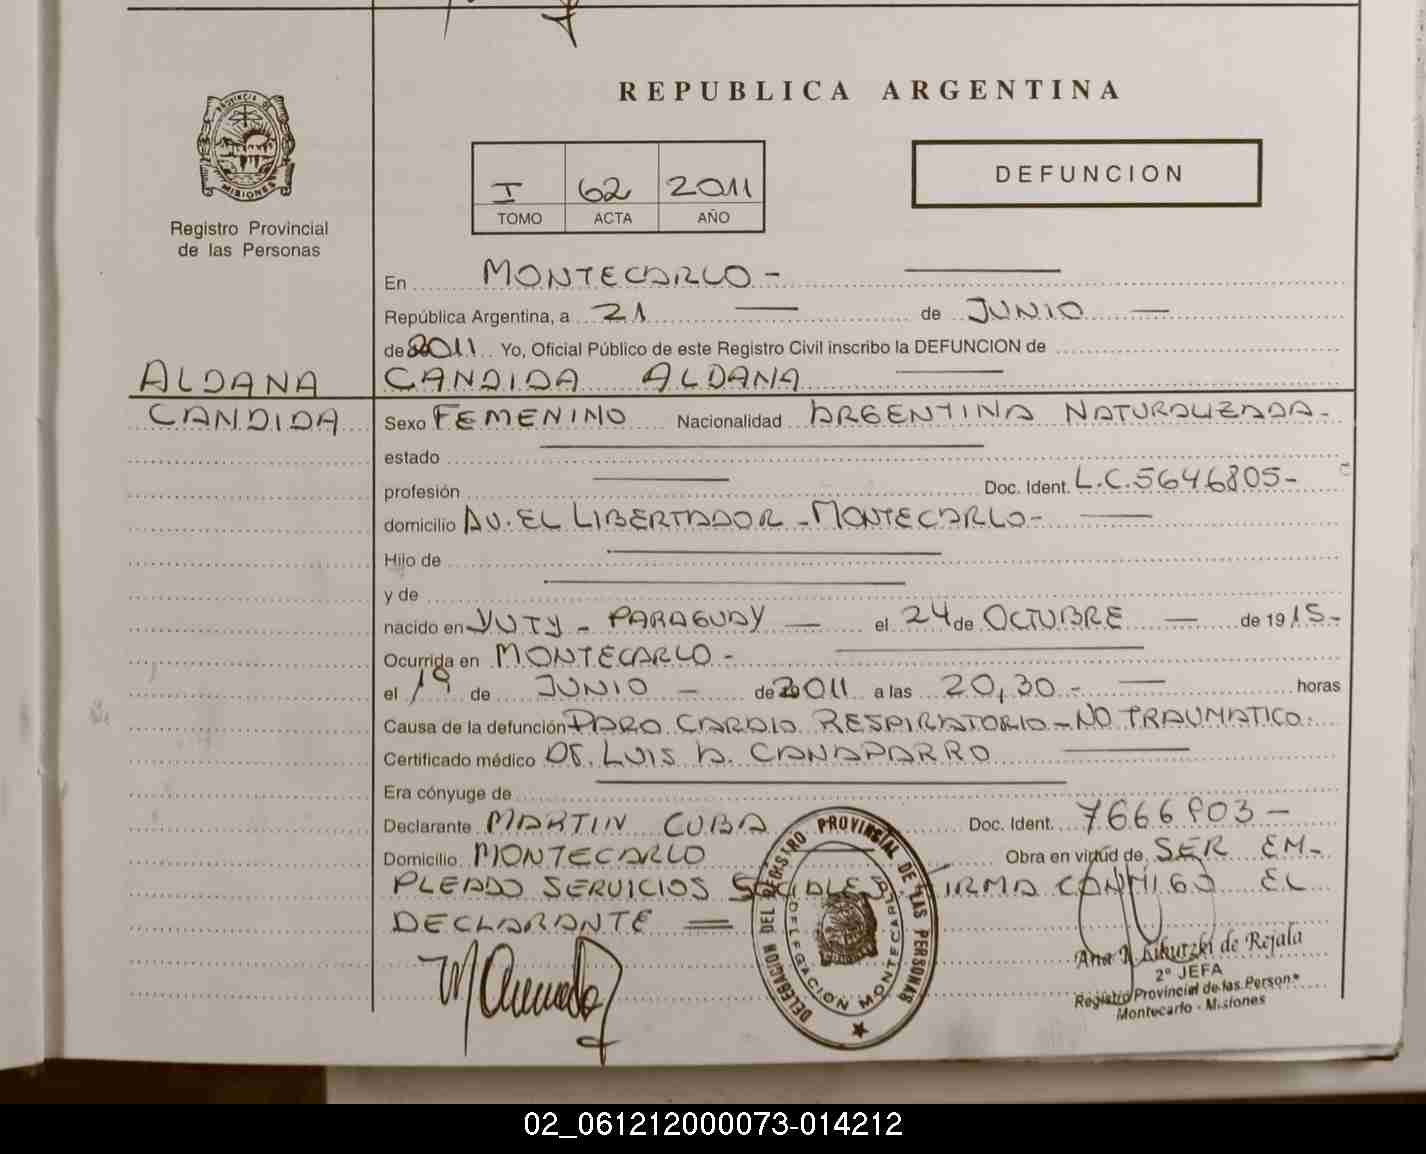 REPUBLICA ARGENTINA
PROVINCIA DE
MISIONES
Registro Provincial
de las Personas
I 62 2011
TOMO ACTA AÑO
DEFUNCION
En MONTECARLO -
República Argentina, a 21 de JUNIO
de 2011 Yo, Oficial Público de este Registro Civil inscribo la DEFUNCION de
ALDANA CANDIDA ALDANA
CANDIDA Sexo FEMENINO Nacionalidad ARGENTINA NATURALIZADA-
estado
profesión Doc. Ident. L.C.5646805-
domicilio AV. EL LIBERTADOR - MONTECARLO-
Hijo de
y de
nacido en YUTY - PARAGUAY el 24 de OCTUBRE de 1915-
Ocurrida en MONTECARLO -
el 19 de JUNIO - de 2011 a las 20,30 - horas
Causa de la defunción PARO CARDIO RESPIRATORIO - NO TRAUMATICO.
Certificado médico DR. LUIS A. CANAPARRO
Era cónyuge de
Declarante MARTIN CUBA Doc. Ident. 7666903 -
Domicilio MONTECARLO Obra en virtud de SER EM-
PLEADO SERVICIOS SOCIALES FIRMA CONMIGO EL
DECLARANTE
DELEGACION DEL REGISTRO PROVINCIAL DE LAS PERSONAS
DELEGACION MONTECARLO
Ana de Rejala
2º JEFA
Registro Provincial de las Person
Montecarlo - Misiones
02_061212000073-014212